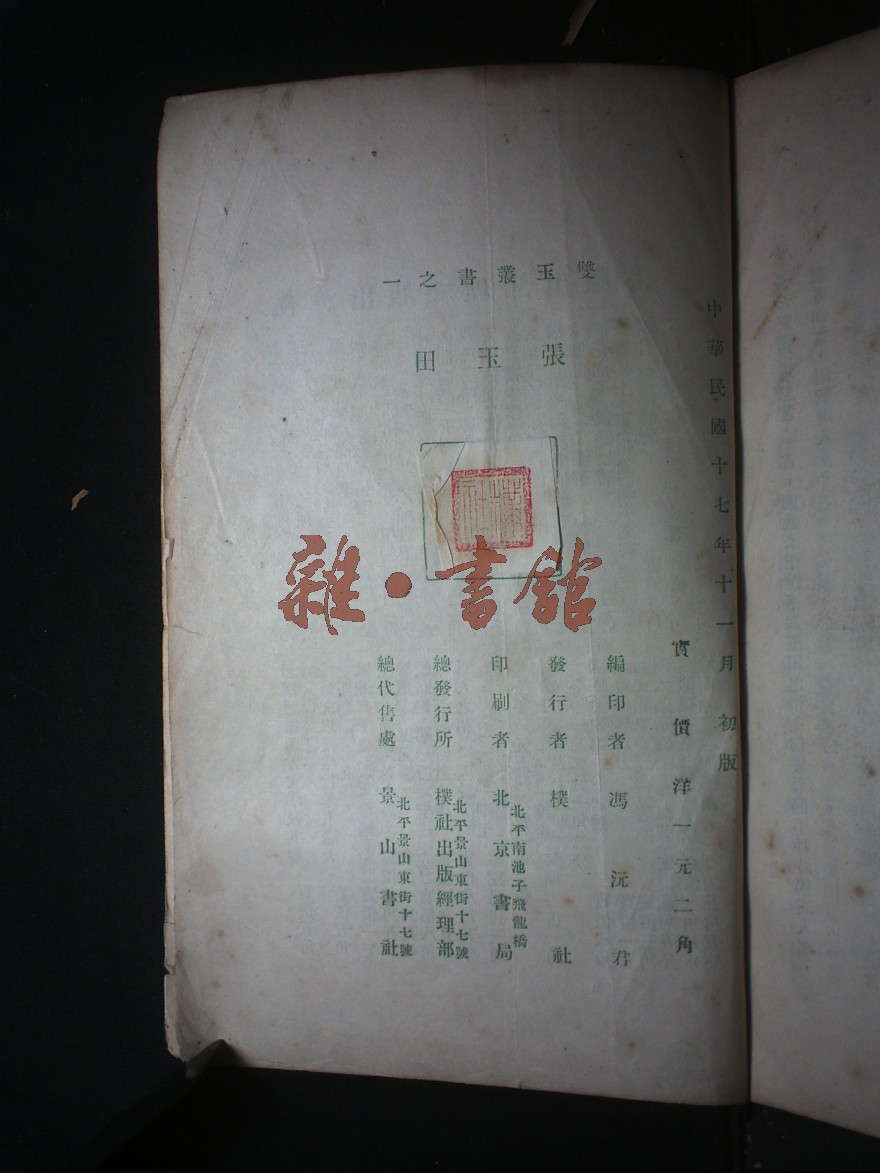 中華民國十七年十一月初版
雙玉叢書之一
張玉田
樸社
雜·書館
實價洋一元二角
編印者 馮沅君
發行者 樸社
北平南池子飛龍橋
印刷者 北京書局
北平景山東街十七號
總發行所 樸社出版經理部
北平景山東街十七號
總代售處 景山書社